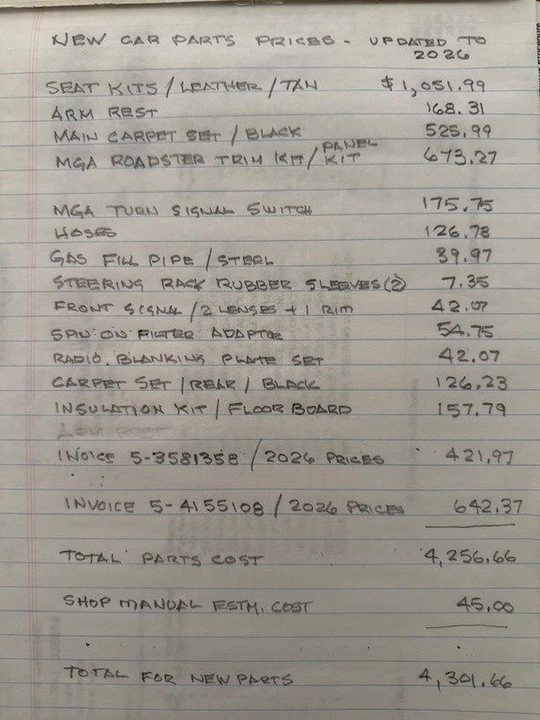 NEW CAR PARTS PRICES - UPDATED TO
2026
SEAT KITS / LEATHER / TAN $1,051.99
ARM REST 168.31
MAIN CARPET SET / BLACK 525.99
MGA ROADSTER TRIM KIT / PANEL KIT 673.27
MGA TURN SIGNAL SWITCH 175.75
HOSES 126.78
GAS FILL PIPE / STEEL 39.97
STEERING RACK RUBBER SLEEVES (2) 7.35
FRONT SIGNAL / 2 LENSES + 1 RIM 42.07
SPIN ON FILTER ADAPTOR 54.75
RADIO BLANKING PLATE SET 42.07
CARPET SET / REAR / BLACK 126.23
INSULATION KIT / FLOOR BOARD 157.79
INOICE 5-3581358 / 2026 PRICES 421.97
INVOICE 5-4155108 / 2026 PRICES 642.37
TOTAL PARTS COST 4,256.66
SHOP MANUAL ESTM. COST 45.00
TOTAL FOR NEW PARTS 4,301.66